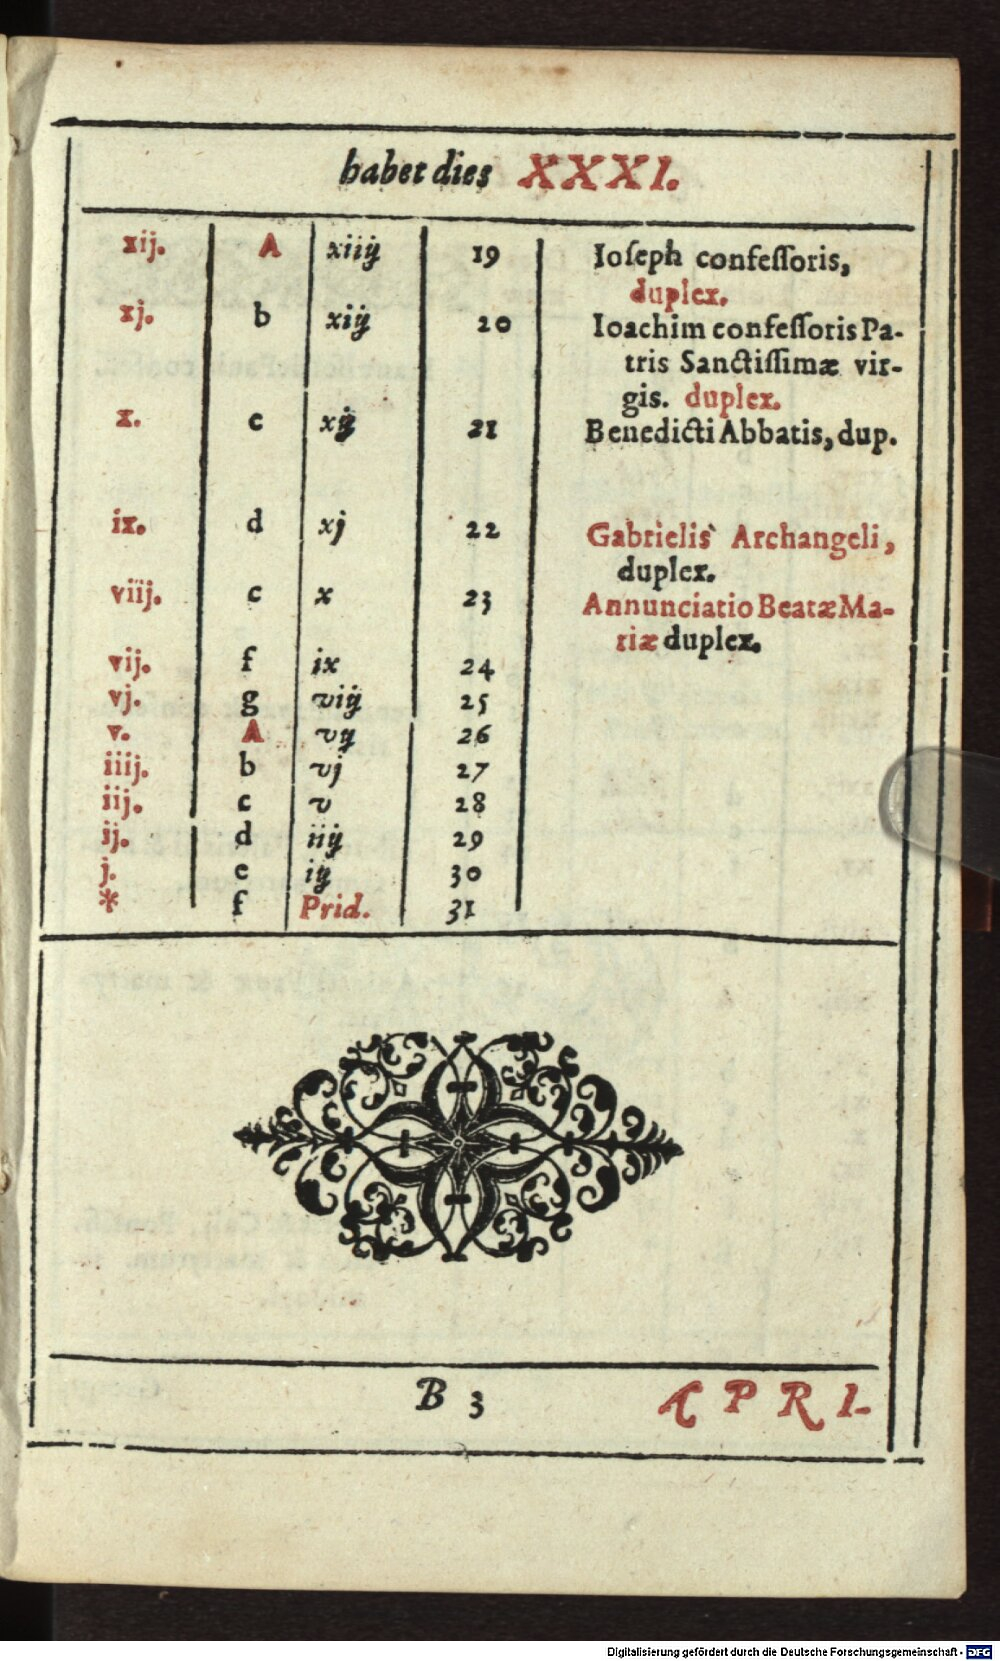 habet dies XXXI.
xij. A xiiij 19 Ioſeph confeſſoris,
duplex.
xj. b xiij 20 Ioachim confeſſoris Pa-
tris Sanctiſſimæ vir-
gis. duplex.
x. c xij 21 Benedicti Abbatis, dup.
ix. d xj 22 Gabrielis Archangeli,
duplex.
viij. c x 23 Annunciatio Beatæ Ma-
riæ duplex.
vij. f ix 24
vj. g viij 25
v. A vij 26
iiij. b vj 27
iij. c v 28
ij. d iiij 29
j. e iij 30
* f Prid. 31
B 3 APRI-
Digitalisierung gefördert durch die Deutsche Forschungsgemeinschaft - DFG